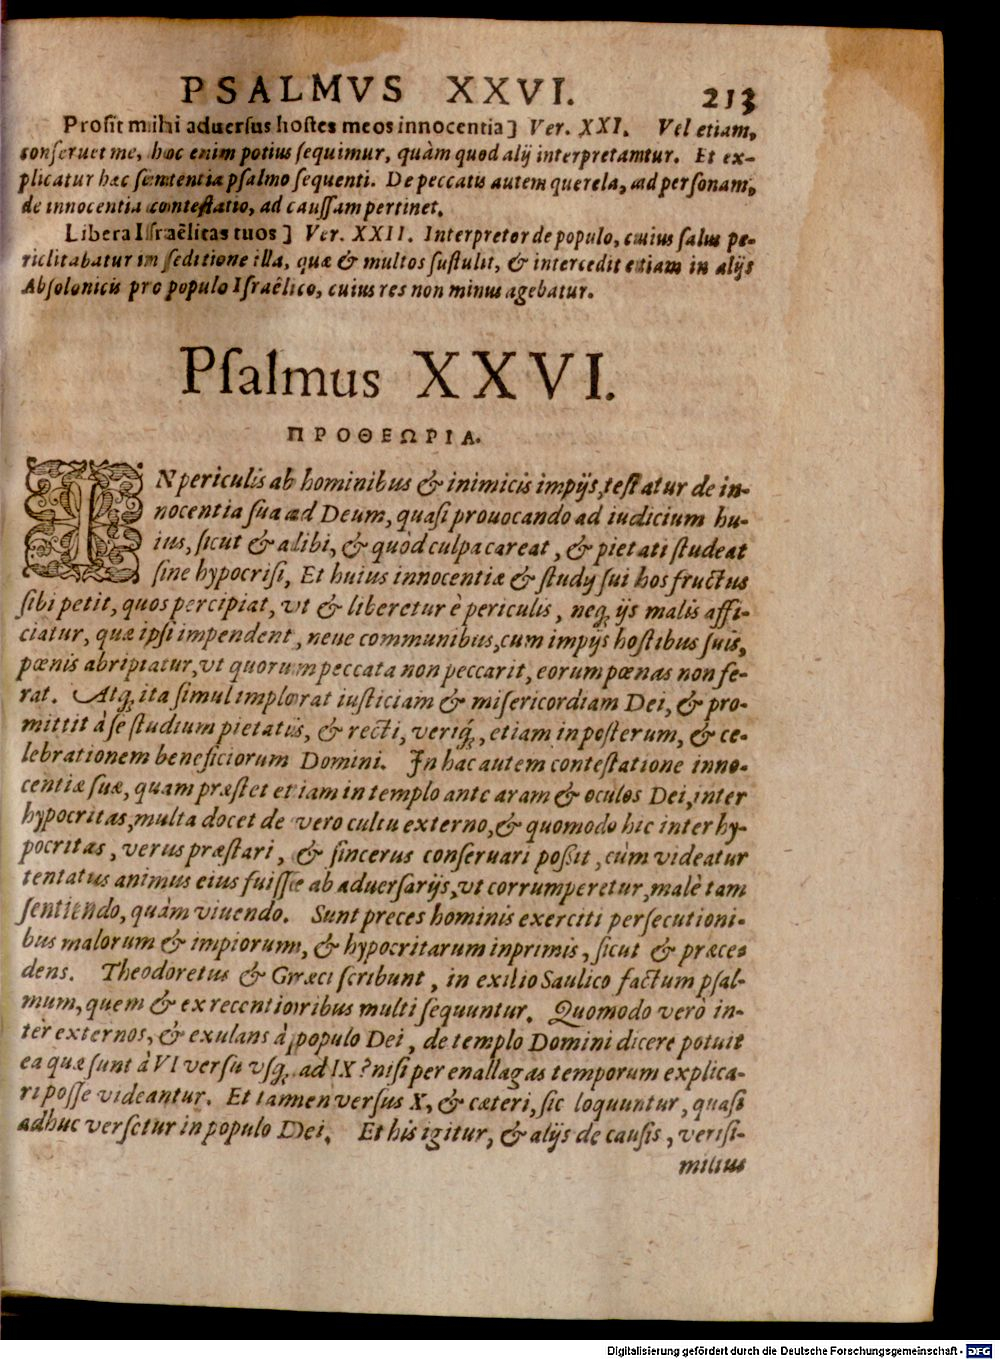 PSALMVS XXVI. 213
Prosit mihi aduersus hostes meos innocentia] Ver. XXI. Vel etiam,
conseruet me, hoc enim potius sequimur, quàm quod alij interpretamtur. Et ex-
plicatur hæc sententia psalmo sequenti. De peccatis autem querela, ad personam,
de innocentia contestatio, ad caussam pertinet.
Libera Israêlitas tuos] Ver. XXII. Interpretor de populo, cuius salus pe-
riclitabatur in seditione illa, quæ & multos sustulit, & intercedit etiam in alijs
Absolonicis pro populo Israêlico, cuius res non minus agebatur.
Psalmus XXVI.
ΠΡΟΘΕΩΡΙΑ.
IN periculis ab hominibus & inimicis impijs, testatur de in-
nocentia sua ad Deum, quasi prouocando ad iudicium hu-
ius, sicut & alibi, & quòd culpa careat, & pietati studeat
sine hypocrisi, Et huius innocentiæ & studij sui hos fructus
sibi petit, quos percipiat, vt & liberetur è periculis, neq; ijs malis affi-
ciatur, quæ ipsi impendent, neue communibus, cum impijs hostibus suis,
pœnis abripiatur, vt quorum peccata non peccarit, eorum pœnas non fe-
rat. Atq; ita simul implorat iusticiam & misericordiam Dei, & pro-
mittit à se studium pietatis, & recti, veriq́;, etiam in posterum, & ce-
lebrationem beneficiorum Domini. In hac autem contestatione inno-
centiæ suæ, quam præstet etiam in templo ante aram & oculos Dei, inter
hypocritas, multa docet de vero cultu externo, & quomodo hic inter hy-
pocritas, verus præstari, & sincerus conseruari poßit, cùm videatur
tentatus animus eius fuisse ab aduersarijs, vt corrumperetur, malè tam
sentiendo, quàm viuendo. Sunt preces hominis exerciti persecutioni-
bus malorum & impiorum, & hypocritarum inprimis, sicut & præce-
dens. Theodoretus & Græci scribunt, in exilio Saulico factum psal-
mum, quem & ex recentioribus multi sequuntur. Quomodo verò in-
ter externos, & exulans à populo Dei, de templo Domini dicere potuit
ea quæ sunt à VI versu vsq; ad IX? nisi per enallagas temporum explica-
ri posse videantur. Et tamen versus X, & cæteri, sic loquuntur, quasi
adhuc versetur in populo Dei. Et his igitur, & alijs de causis, verisi-
milius
Digitalisierung gefördert durch die Deutsche Forschungsgemeinschaft - DFG